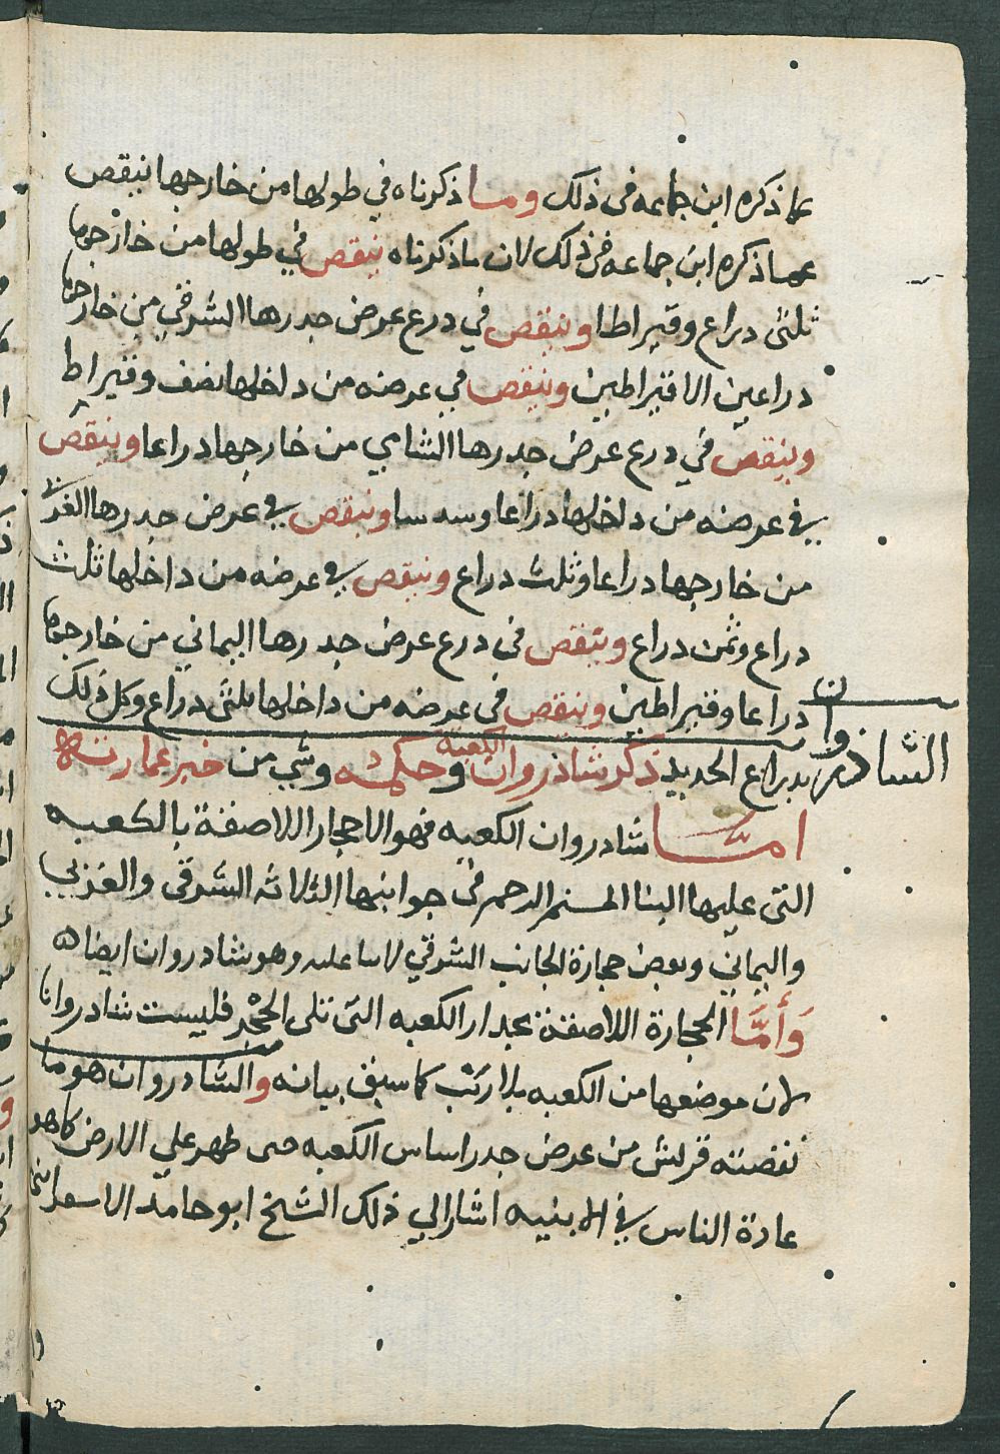 عما ذكره ابن جماعه فى ذلك وما ذكرناه في طولها من خارجها ينقص
عما ذكره ابن جماعه في ذلك لان ما ذكرناه ينقص في طولها من خارجها
ثلثى دراع وقيراطا وينقص في درع عرض جدرها الشرقي من خارجها
دراعين الا قيراطين وينقص في عرضه من داخلها نصف وقيراط
وينقص في درع عرض جدرها الشامي من خارجها دراعا وينقص
في عرضه من داخلها دراعا وسدسا وينقص في عرض جدرها الغربي
من خارجها دراعا وثلث دراع وينقص في عرضه من داخلها ثلث
دراع وثمن دراع وينقص في درع عرض جدرها اليماني من خارجها
دراعا وقيراطين وينقص في عرضه من داخلها ثلثى دراع وكل ذلك
الشاذروان
بدراع الحديد ذكر شاذروان الكعبة وحكمه وشي من خبر عمارته
اما شادروان الكعبه فهو الاحجار اللاصقة بالكعبه
التى عليها البنا المسنم المرخم في جوانبها الثلاثه الشرقي والغربي
واليماني وبعض حجارة الجانب الشرقي لا بنا عليه وهو شادروان ايضا
وَأَمَّا الحجارة اللاصقة بجدار الكعبه التى تلى الحجْر فليست شادروانا
لان موضعها من الكعبه بلا ريب كما سبق بيانه والشادروان هو ما
نقصته قريش من عرض جدر اساس الكعبه حتى ظهر علي الارض كما هو
عادة الناس في الابنيه اشار الي ذلك الشيخ ابو حامد الاسفرايني